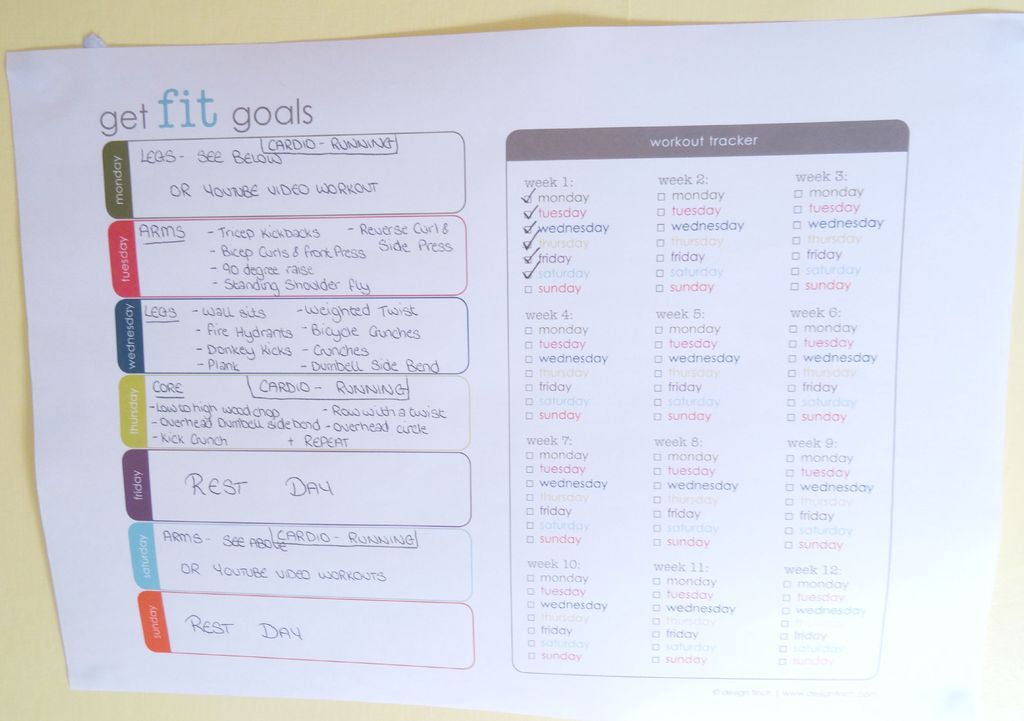 get fit goals
monday
LEGS - SEE BELOW
CARDIO - RUNNING
OR YOUTUBE VIDEO WORKOUT
tuesday
ARMS
- Tricep Kickbacks
- Bicep Curls & Front Press
- 90 degree raise
- Standing Shoulder Fly
- Reverse Curl &
Side Press
wednesday
LEGS
- Wall sits
- Fire Hydrants
- Donkey Kicks
- Plank
- Weighted Twist
- Bicycle Crunches
- Crunches
- Dumbell Side Bend
thursday
CORE
CARDIO - RUNNING
- Low to high wood chop
- Overhead Dumbell side bend
- Kick Crunch
- Row with a twist
- Overhead circle
+ REPEAT
friday
REST DAY
saturday
ARMS - SEE ABOVE
CARDIO - RUNNING
OR YOUTUBE VIDEO WORKOUTS
sunday
REST DAY
workout tracker
week 1:
monday
tuesday
wednesday
thursday
friday
saturday
sunday
week 2:
monday
tuesday
wednesday
thursday
friday
saturday
sunday
week 3:
monday
tuesday
wednesday
thursday
friday
saturday
sunday
week 4:
monday
tuesday
wednesday
thursday
friday
saturday
sunday
week 5:
monday
tuesday
wednesday
thursday
friday
saturday
sunday
week 6:
monday
tuesday
wednesday
thursday
friday
saturday
sunday
week 7:
monday
tuesday
wednesday
thursday
friday
saturday
sunday
week 8:
monday
tuesday
wednesday
thursday
friday
saturday
sunday
week 9:
monday
tuesday
wednesday
thursday
friday
saturday
sunday
week 10:
monday
tuesday
wednesday
thursday
friday
saturday
sunday
week 11:
monday
tuesday
wednesday
thursday
friday
saturday
sunday
week 12:
monday
tuesday
wednesday
thursday
friday
saturday
sunday
© design finch | www.designfinch.com